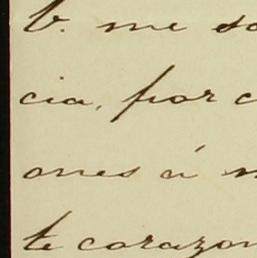 V. me
cia, por
ones á
te corazon